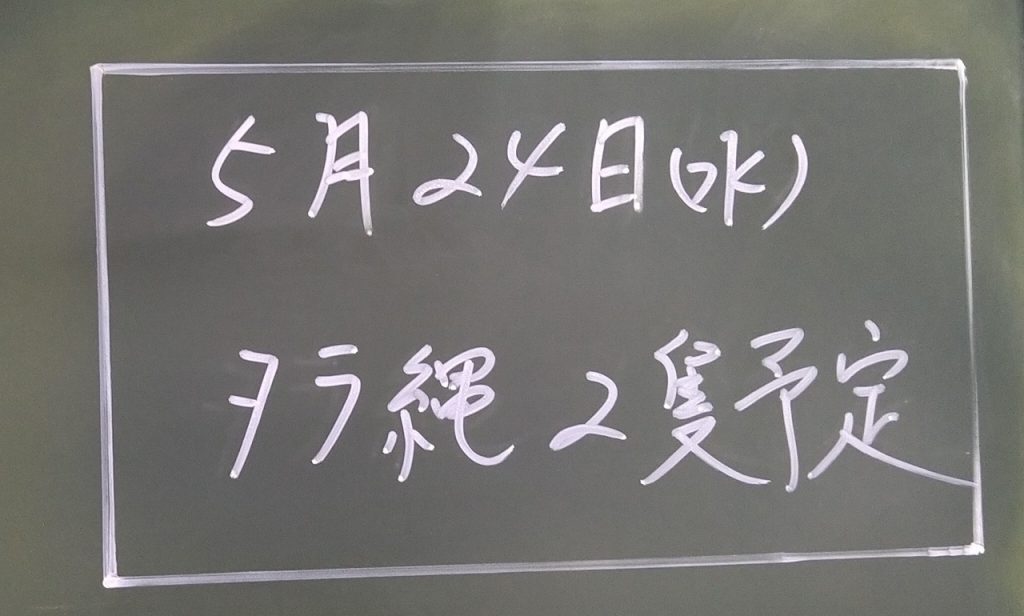 5月24日(水)
タラ縄 2隻予定